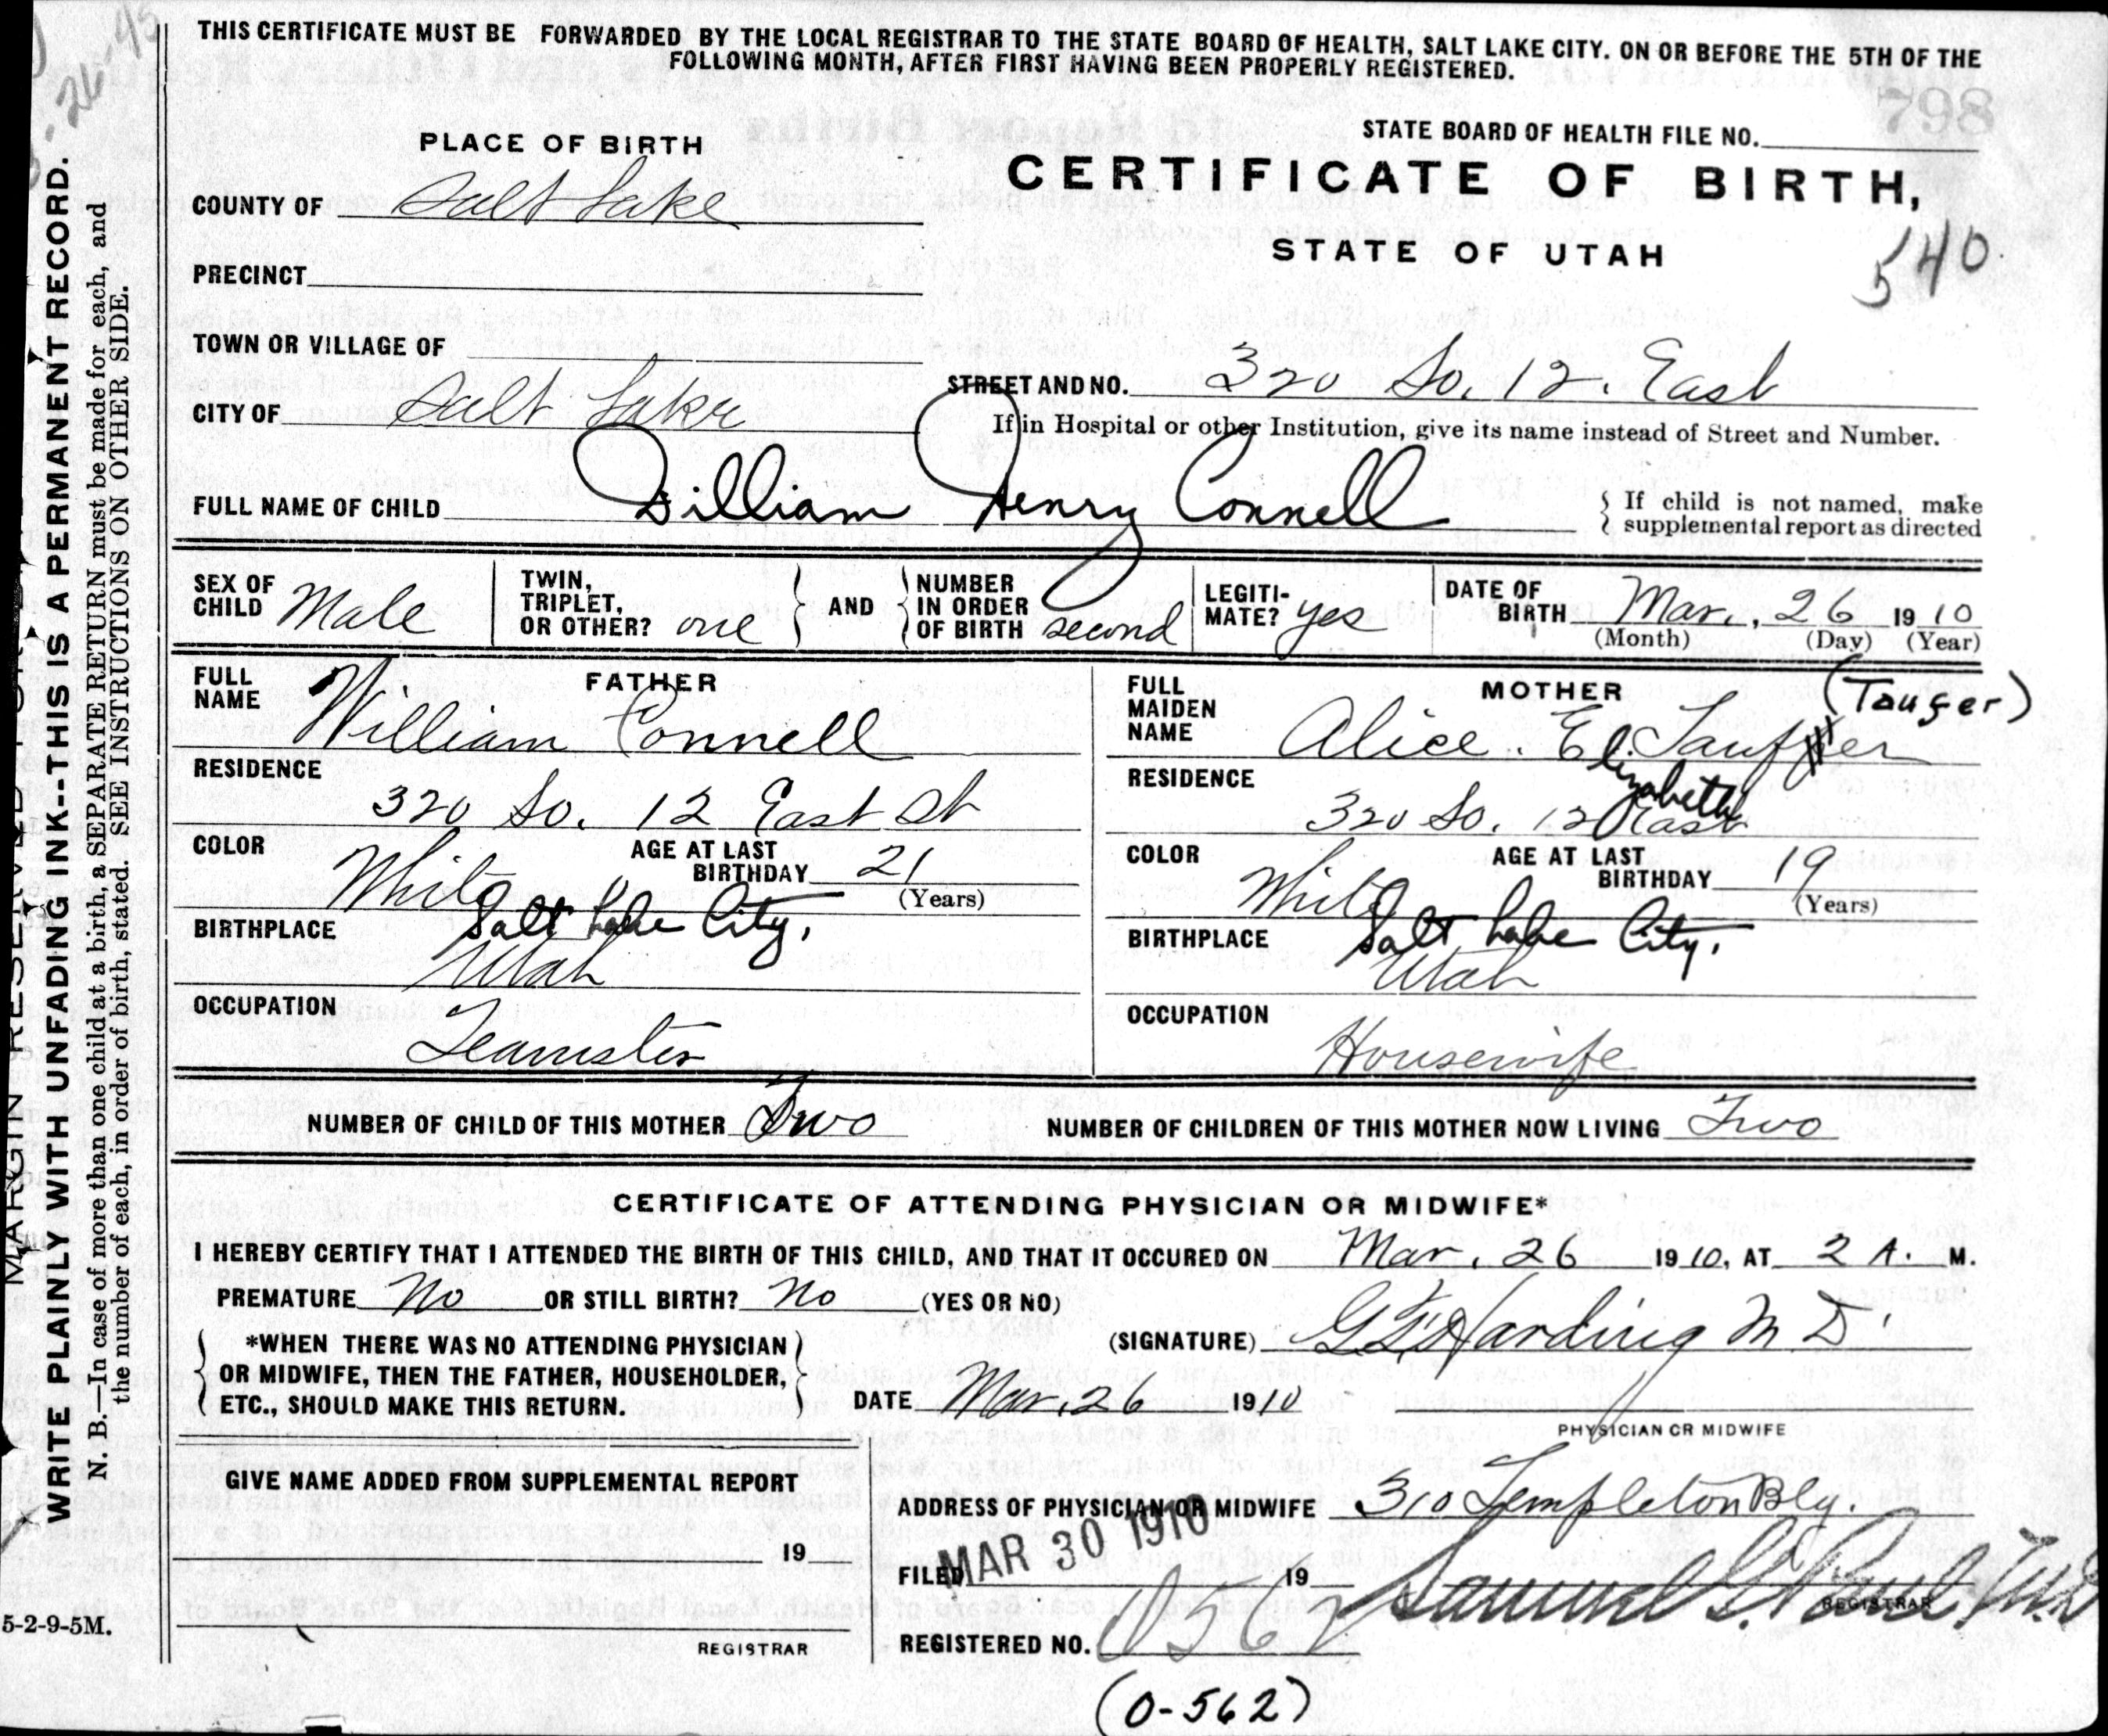 THIS CERTIFICATE MUST BE FORWARDED BY THE LOCAL REGISTRAR TO THE STATE BOARD OF HEALTH, SALT LAKE CITY. ON OR BEFORE THE 5TH OF THE
FOLLOWING MONTH, AFTER FIRST HAVING BEEN PROPERLY REGISTERED.
798
STATE BOARD OF HEALTH FILE NO.
PLACE OF BIRTH
CERTIFICATE OF BIRTH,
COUNTY OF Salt Lake
STATE OF UTAH
540
PRECINCT
TOWN OR VILLAGE OF
STREET AND NO. 320 So. 12. East
CITY OF Salt Lake
If in Hospital or other Institution, give its name instead of Street and Number.
FULL NAME OF CHILD William Henry Connell
If child is not named, make
supplemental report as directed
SEX OF CHILD Male
TWIN, TRIPLET, OR OTHER? one
AND
NUMBER IN ORDER OF BIRTH second
LEGITIMATE? yes
DATE OF BIRTH Mar., 26 1910
(Month) (Day) (Year)
FATHER
FULL NAME William Connell
RESIDENCE
320 So. 12 East St
COLOR White
AGE AT LAST BIRTHDAY 21
(Years)
BIRTHPLACE Salt Lake City,
Utah
OCCUPATION
Teamster
MOTHER (Taufer)
FULL MAIDEN NAME Alice. El. Taufer
Elizabeth
RESIDENCE
320 So. 12 East
COLOR White
AGE AT LAST BIRTHDAY 19
(Years)
BIRTHPLACE Salt Lake City.
Utah
OCCUPATION
Housewife
NUMBER OF CHILD OF THIS MOTHER Two
NUMBER OF CHILDREN OF THIS MOTHER NOW LIVING Two
CERTIFICATE OF ATTENDING PHYSICIAN OR MIDWIFE*
I HEREBY CERTIFY THAT I ATTENDED THE BIRTH OF THIS CHILD, AND THAT IT OCCURED ON Mar. 26 1910, AT 2 A. M.
PREMATURE No OR STILL BIRTH? No (YES OR NO)
*WHEN THERE WAS NO ATTENDING PHYSICIAN
OR MIDWIFE, THEN THE FATHER, HOUSEHOLDER,
ETC., SHOULD MAKE THIS RETURN.
(SIGNATURE) G F Harding M. D.
DATE Mar. 26 1910
PHYSICIAN OR MIDWIFE
GIVE NAME ADDED FROM SUPPLEMENTAL REPORT
19
REGISTRAR
ADDRESS OF PHYSICIAN OR MIDWIFE 310 Templeton Bldg.
FILED MAR 30 1910 19
Samuel G. Paul, M.D.
REGISTRAR
REGISTERED NO. 0562
(0-562)
MARGIN RESERVED FOR
WRITE PLAINLY WITH UNFADING INK--THIS IS A PERMANENT RECORD.
N. B.—In case of more than one child at a birth, a SEPARATE RETURN must be made for each, and
the number of each, in order of birth, stated. SEE INSTRUCTIONS ON OTHER SIDE.
5-2-9-5M.